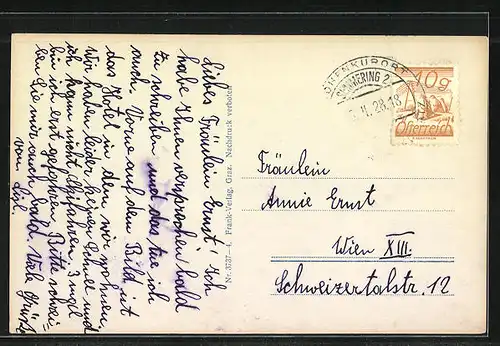 Liebes Fräulein Ernst! Ich
habe Ihnen versprochen bald
zu schreiben und das tue ich
auch. Vorne auf dem Bild ist
das Hotel in dem wir wohnen.
Wir haben leider keinen Schnee und
ich kann nicht Skifahren. 3 mal
bin ich erst gefahren. Bitte schrei-
ben Sie mir auch bald. Viele Grüsse
von
Nr. 3737-4. Frank-Verlag, Graz. Nachdruck verboten
HÖHENKURORT
SEMMERING 2
II. 28. 18
40g
Österreich
Fräulein
Annie Ernst
Wien XIII.
Schweizertalstr. 12